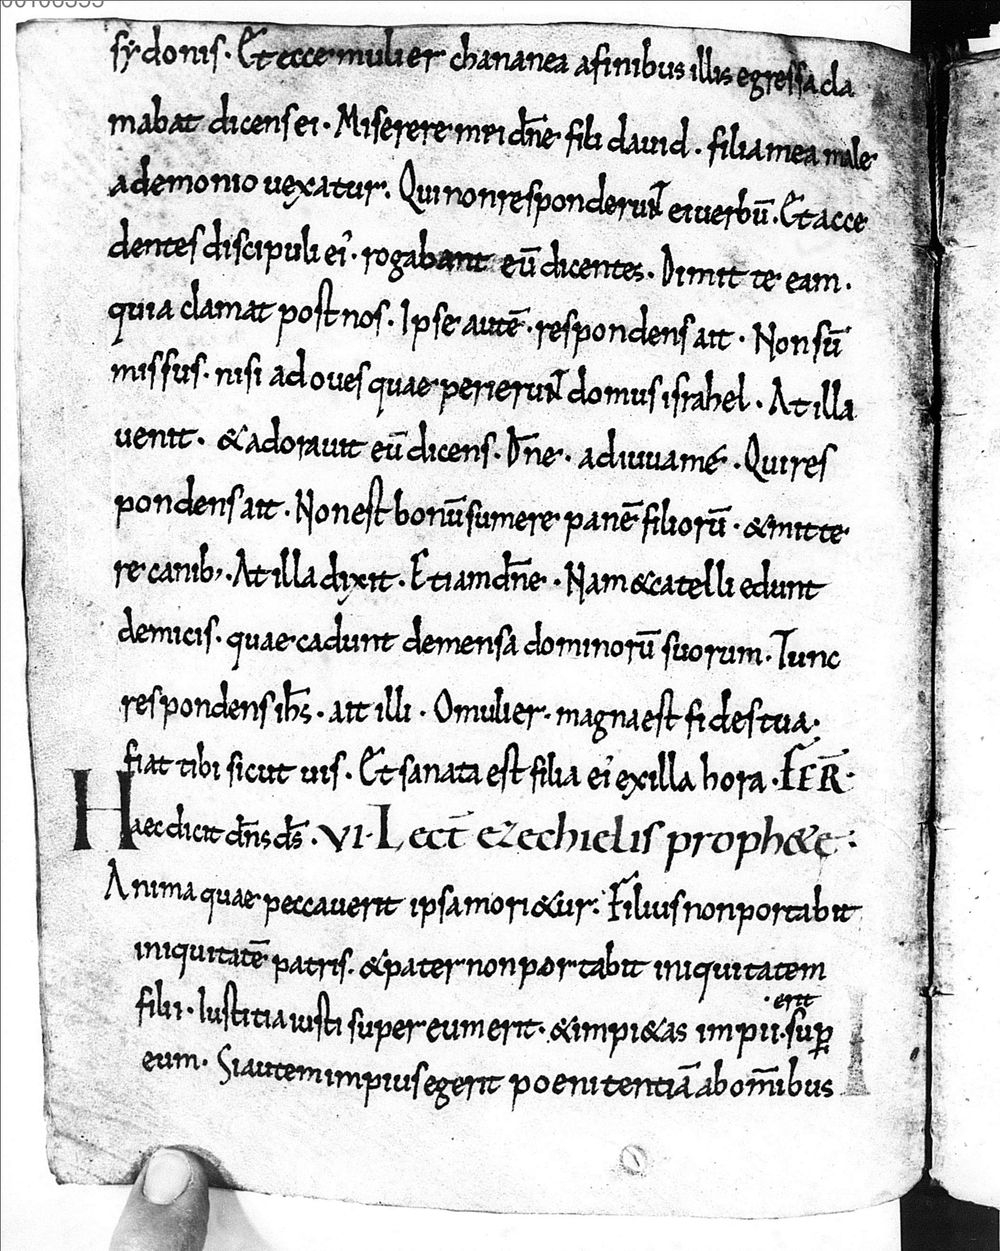 sydonis. Et ecce mulier chananea afinibus illis egressa cla
mabat dicens ei. Miserere mei dñe fili dauid. filia mea male
ademonio uexatur. Qui non responderunt ei uerbū. Et acce
dentes discipuli ei' rogabant eū dicentes. Dimitte eam.
quia clamat post nos. Ipse autē respondens ait. Non sū
missus. nisi ad oues quae perierunt domus israhel. At illa
uenit. & adorauit eū dicens. Dñe. adiuua mé. Qui res
pondens ait. Non est bonū sumere panē filiorū. & mitte
re canib;. At illa dixit. Etiam dñe. Nam & catelli edunt
demicis. quae cadunt demensa dominorū suorum. Tunc
respondens ihs. ait illi. O mulier. magna est fides tua;
fiat tibi sicut uis. Et sanata est filia ei' exilla hora. FER
Haec dicit dñs ds. VI. Lect ezechielis proph&e:
Anima quae peccauerit ipsa mori&ur. Filius non portabit
iniquitatē patris. & pater non portabit iniquitatem
filii. Iustitia iusti super eum erit. & impi&as impii. erit sup
eum. Si autem impius egerit poenitentiā ab omībus